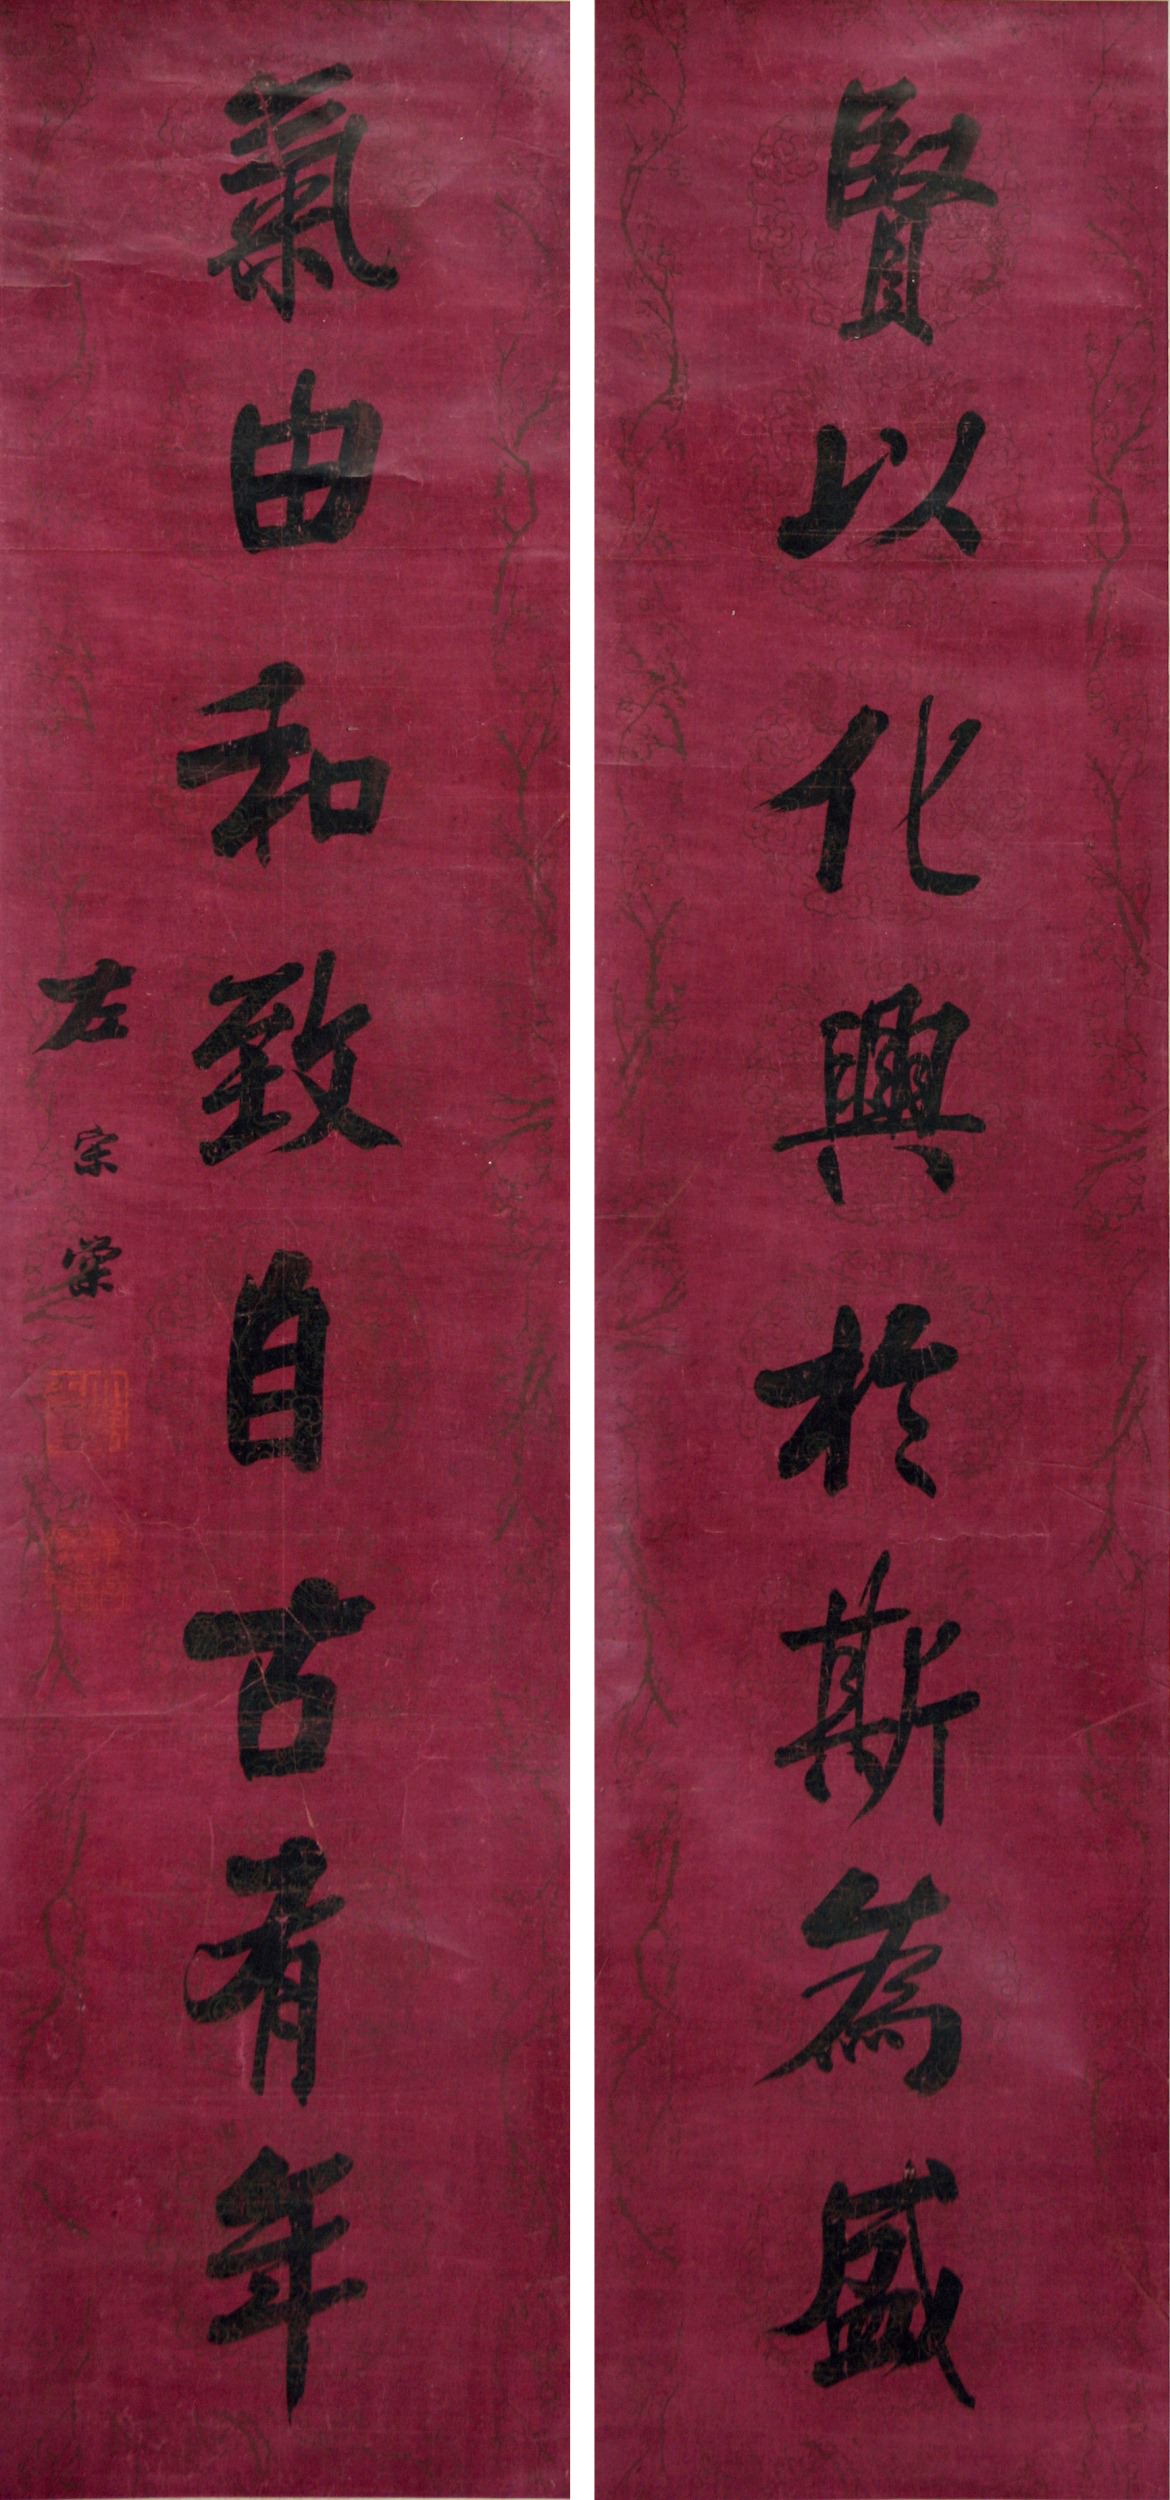 賢以化興於斯為盛
氣由和致自古有年
左宗棠